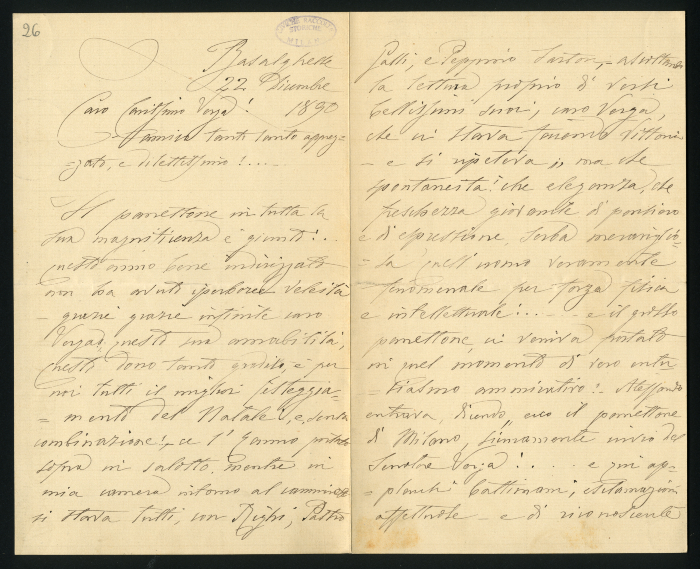 26
Basalghelle
22 Dicembre
1890
Caro Carissimo Verga!
Amico tanto tanto apprez-
=zato, e dilettissimo!....
Il panettone in tutta la
sua magnificenza è giunto!..
questo anno bene indirizzato
non ha avuto iperboree velleità
- grazie grazie infinite caro
Verga, questa sua amabilità,
questo dono tanto gradito, è per
noi tutti il miglior festeggia=
=mento del Natale!, e, senta
combinazione!, ce l'hanno portato
sopra in salotto, mentre in
mia camera intorno al caminetto
si stava tutti, con Righi,
Galli, e Peppino - ascoltando
la lettura proprio di versi
bellissimi suoi, caro Verga,
che ci stava facendo Vittorio
- e si ripeteva, ma che
spontaneità! che eleganza, che
freschezza giovanile di pensiero
e di espressione, serba meraviglio=
=sa quest'uomo veramente
fenomenale per forza fisica
e intellettuale!..... e il grosso
panettone, ci veniva portato
in quel momento di vero entu
=siasmo ammirativo! - Alessandro
entrava, dicendo, ecco il panettone
di Milano, sicuramente invio del
Senatore Verga!.... e qui ap=
=plausi battimani, esclamazioni
affettuose - e di riconoscente